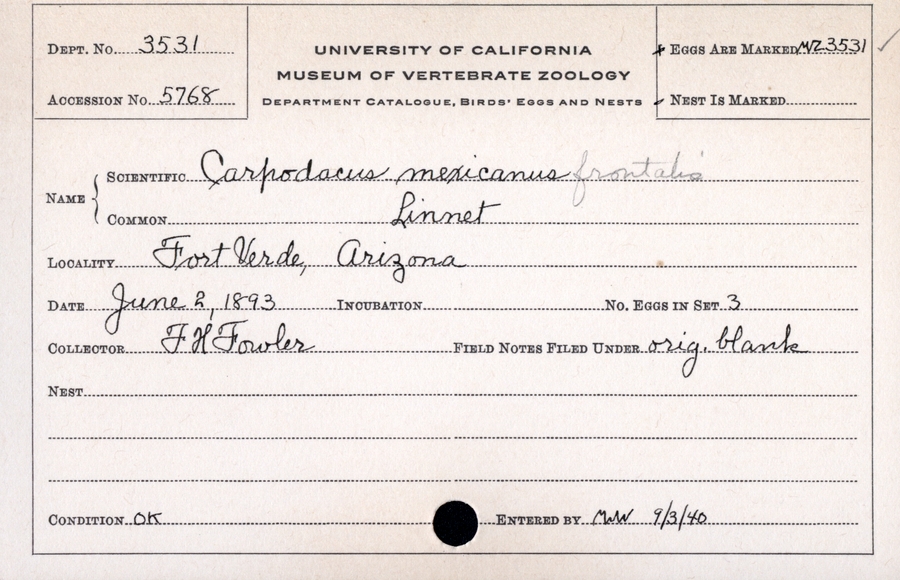 DEPT. No. 3531
ACCESSION No. 5768
UNIVERSITY OF CALIFORNIA
MUSEUM OF VERTEBRATE ZOOLOGY
DEPARTMENT CATALOGUE, BIRDS' EGGS AND NESTS
EGGS ARE MARKED MVZ3531
NEST IS MARKED
NAME
SCIENTIFIC Carpodacus mexicanus frontalis
COMMON Linnet
LOCALITY Fort Verde, Arizona
DATE June 2, 1893 INCUBATION No. EGGS IN SET 3
COLLECTOR F H Fowler FIELD NOTES FILED UNDER orig. blank
NEST
CONDITION OK ENTERED BY MWW 9/3/40